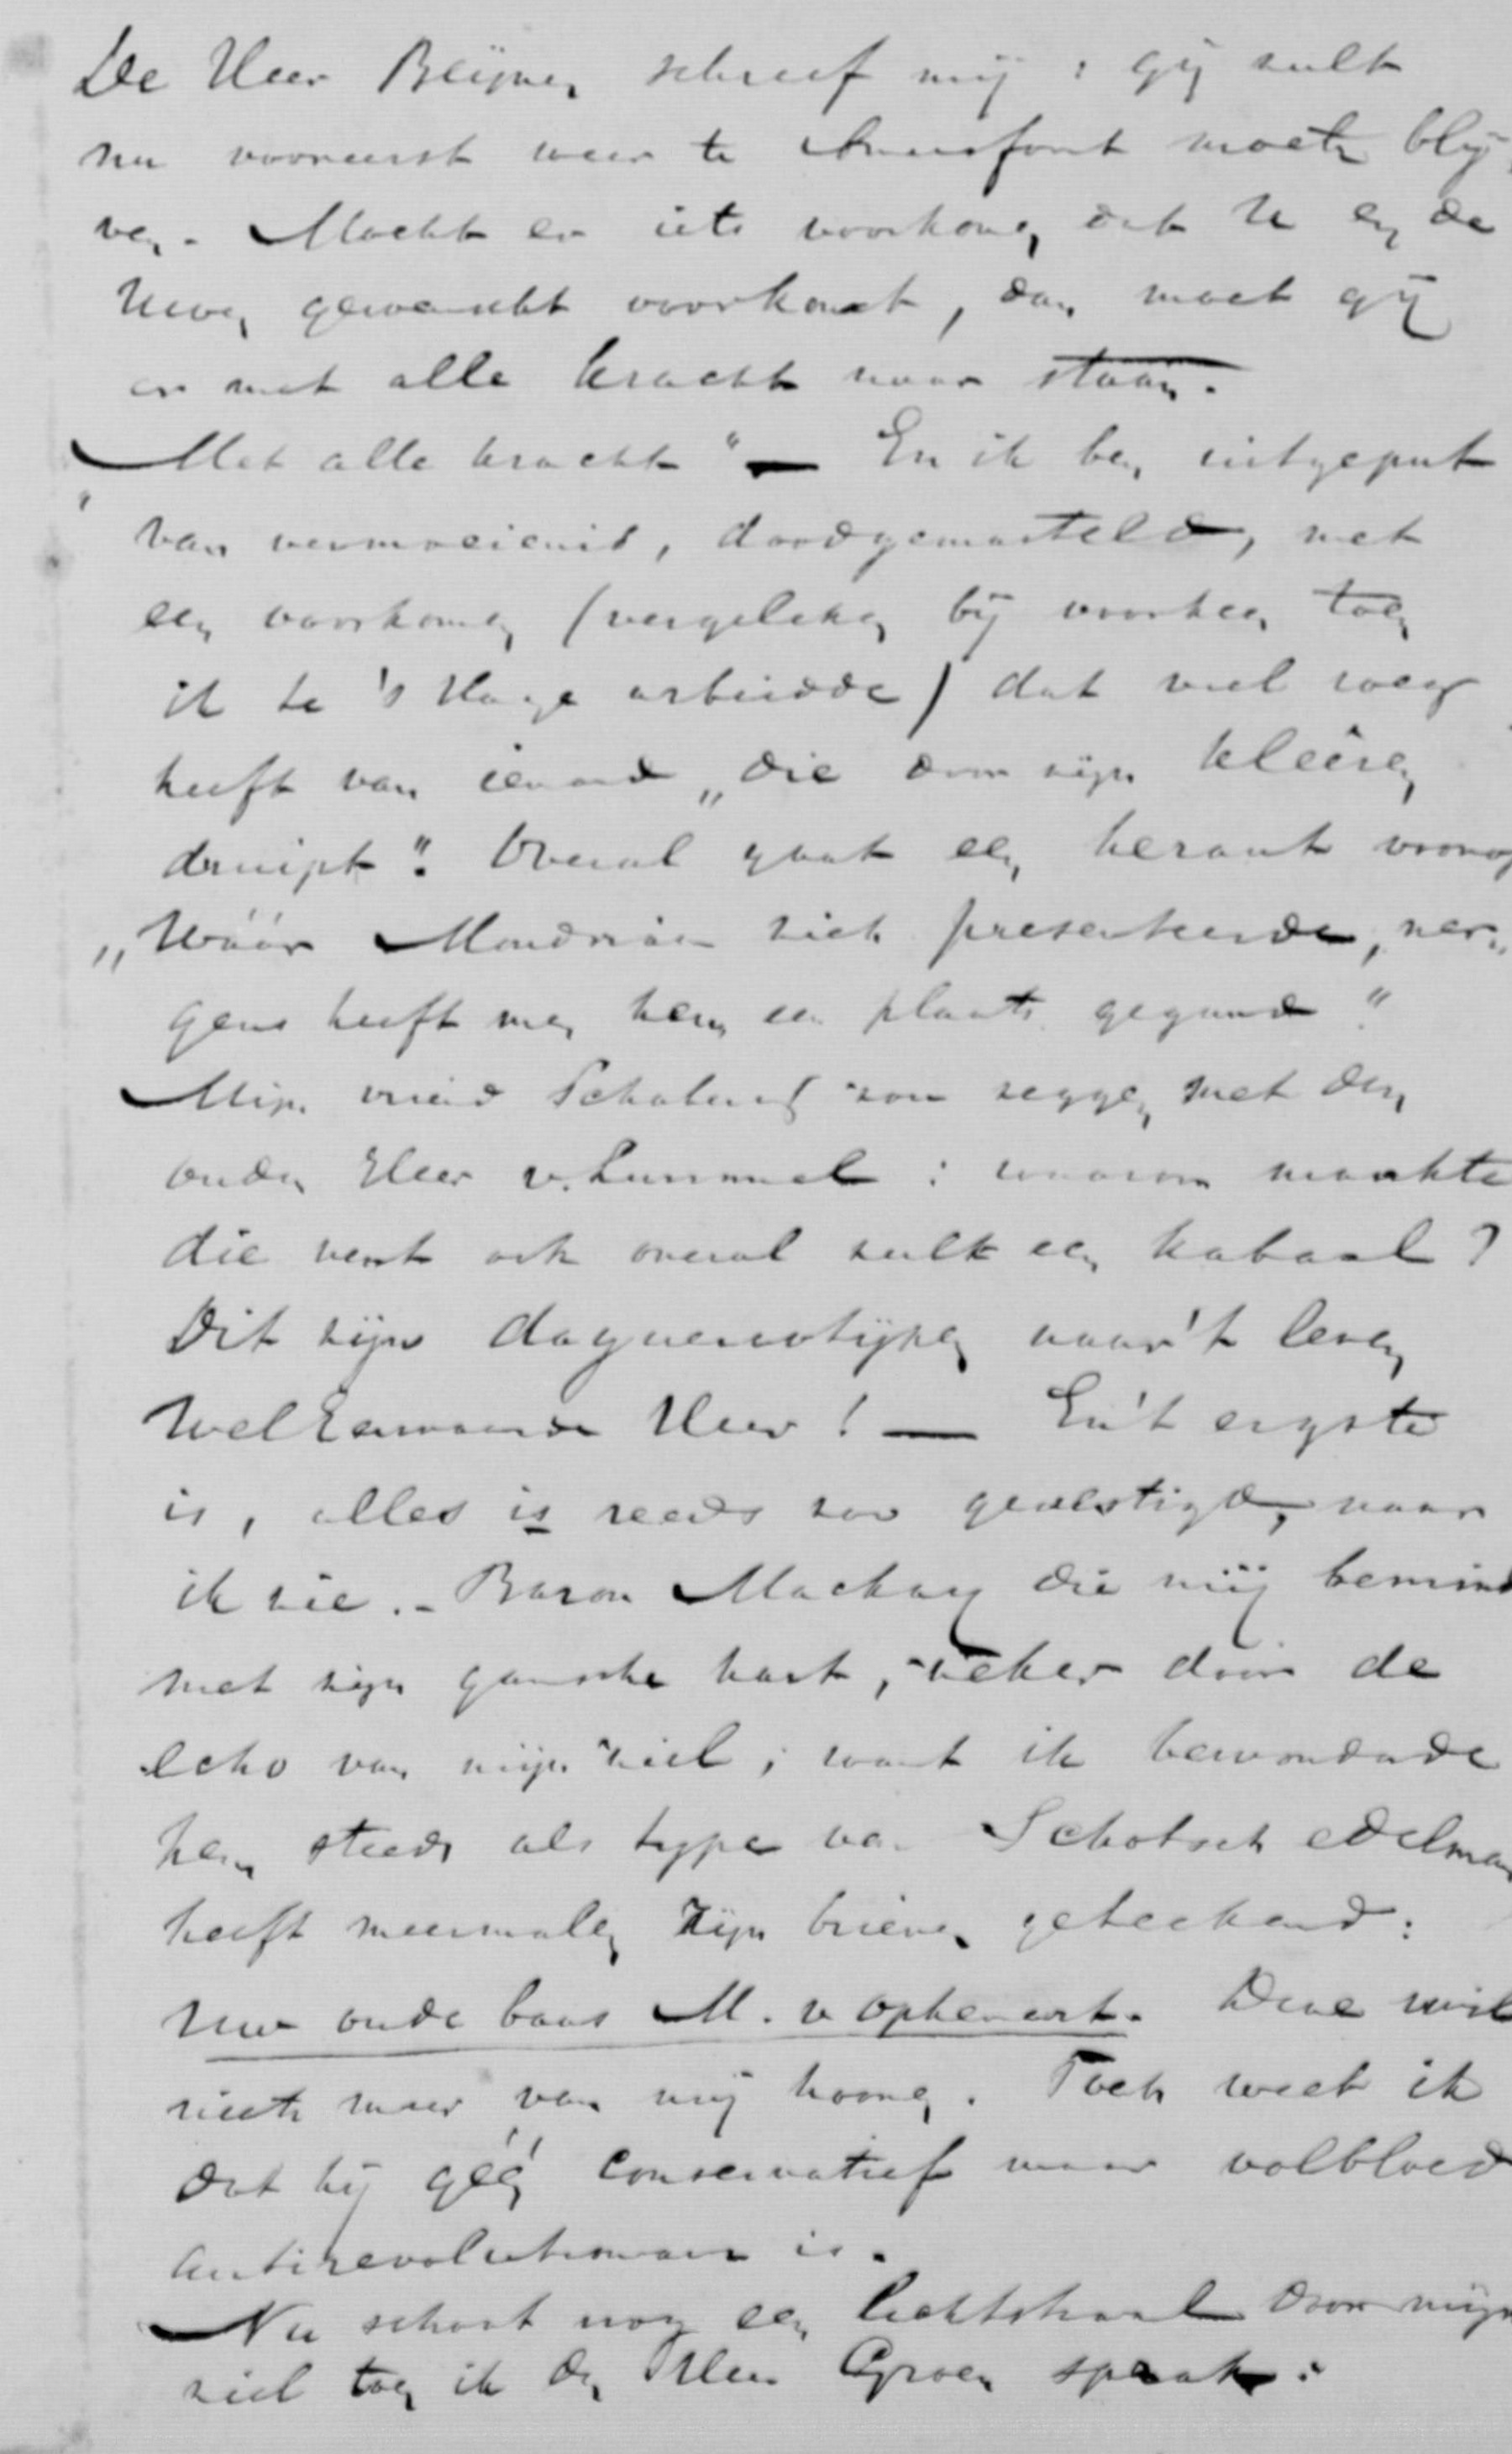 De Heer Beijnen schreef mij: gij zult
nu vooreerst weer te Amersfoort moeten blij-
ven. Mocht er iets voorkomen, dat U en de
Uwen gewenscht voorkomt, dan moet gij
er met alle kracht naar staan.
„Met alle kracht" — En ik ben uitgeput
van vermoeienis, doodgemarteld, met
een voorkomen (vergeleken bij voorheen toen
ik te 's Hage arbeidde) dat veel weg
heeft van iemand „die door zijn kleêren
druipt". Overal gaat een heraut voorop
„Wáár Mondriaan zich presenteerde, ner-
gens heeft men hem een plaats gegund"
Mijn vriend zou zeggen met den
ouden Heer v. Lummel: waarom maakte
die vent ook overal zulk een kabaal?
Dit zijn daguerreotypen naar 't leven
WelEerwaarde Heer! — En 't ergste
is, alles is reeds zoo gevestigd, naar
ik zie. – Baron Mackay die mij bemint
met zijn gansche hart, zeker door de
echo van mijn ziel; want ik bewonderde
hem steeds als type van Schotsch edelman
heeft meermalen zijn brieven geteekend:
Uw oude baas M. v Ophemert. Deze wil
niets meer van mij hooren. Toch weet ik
dat hij géén conservatief maar volbloed
antirevolutionair is.
Nu schoot nog een lichtstraal door mijn
ziel toen ik den Heer Groen sprak: